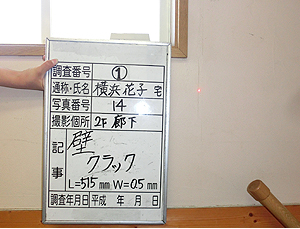 調査番号 ①
通称・氏名 横浜花子 宅
写真番号 14
撮影個所 2F 廊下
記事 壁
クラック
L=515mm W=0.5mm
調査年月日 平成 年 月 日